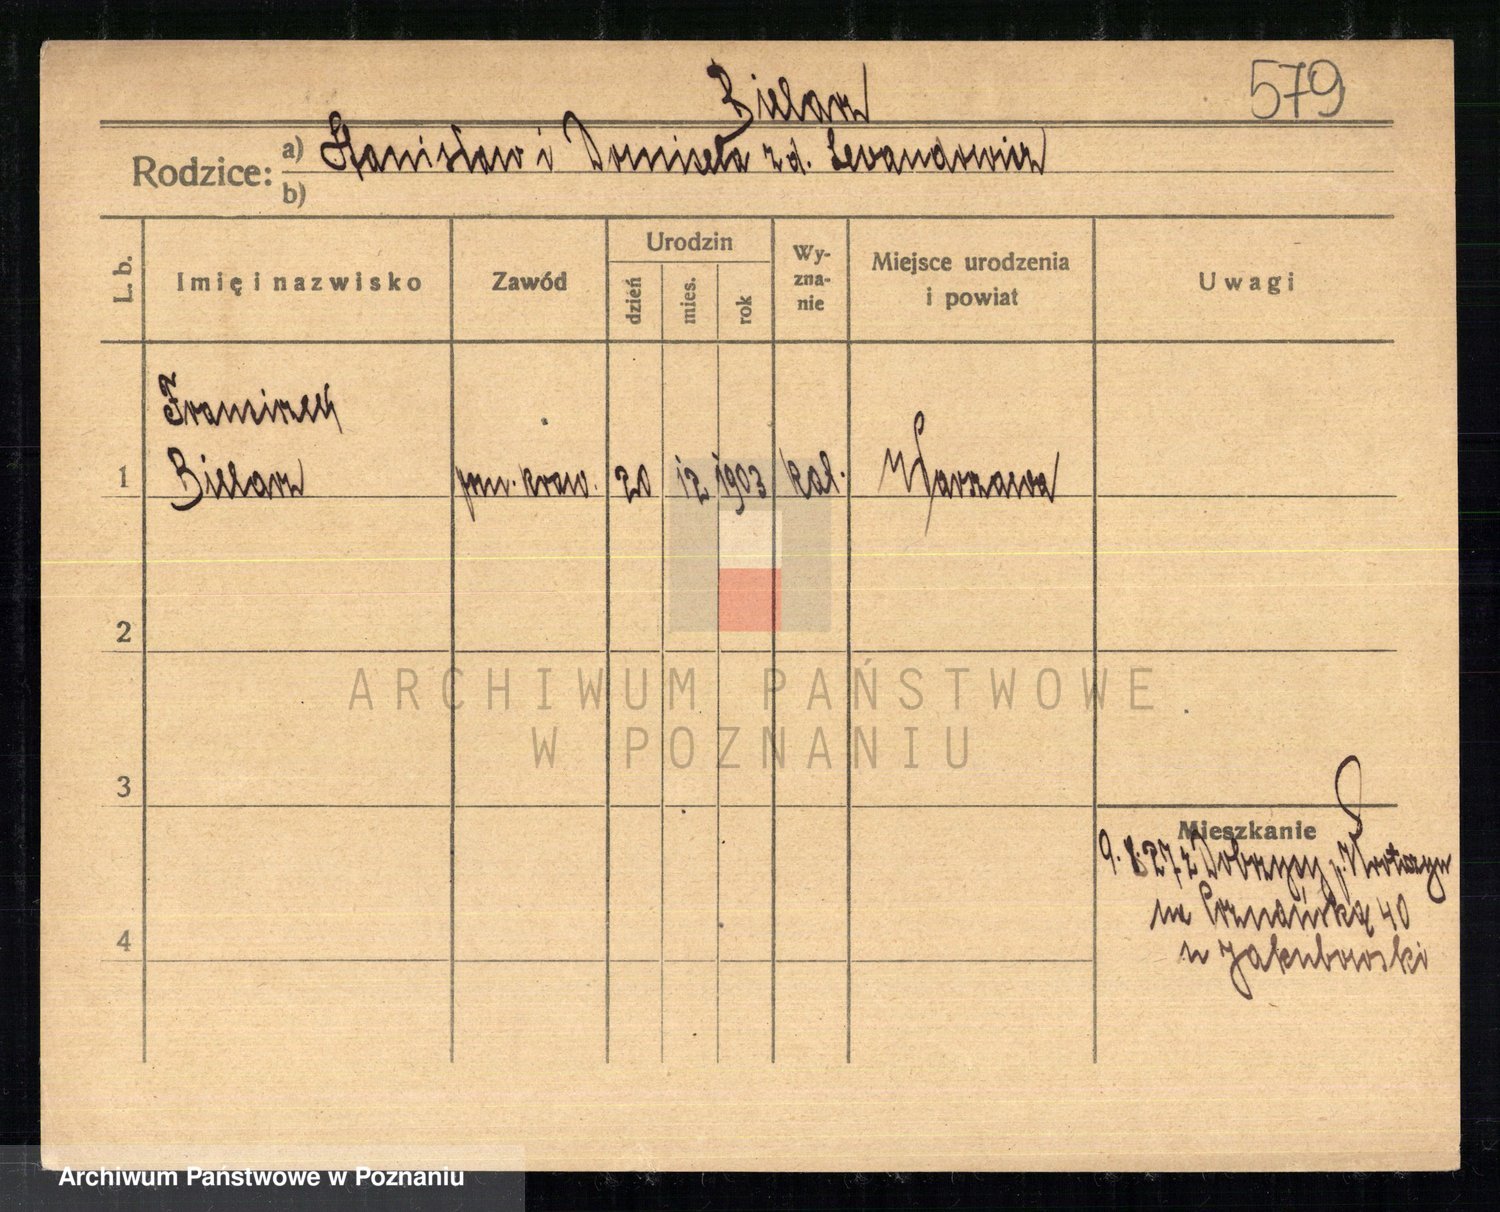 Bielarz
579
Rodzice: a) Stanisław i Domicela z d. Lewandowicz
b)
L. b.
Imię i nazwisko
Zawód
Urodzin
dzień
mies.
rok
Wy-
zna-
nie
Miejsce urodzenia
i powiat
Uwagi
Franciszek
1 Bielarz kraw. 20 12 1903 kat. Warszawa
2
3
4
Mieszkanie
9.8.27 z Dobrzycy p. Krotoszyn
na Poznańską 40
u Jakubowski
ARCHIWUM PAŃSTWOWE
W POZNANIU
Archiwum Państwowe w Poznaniu